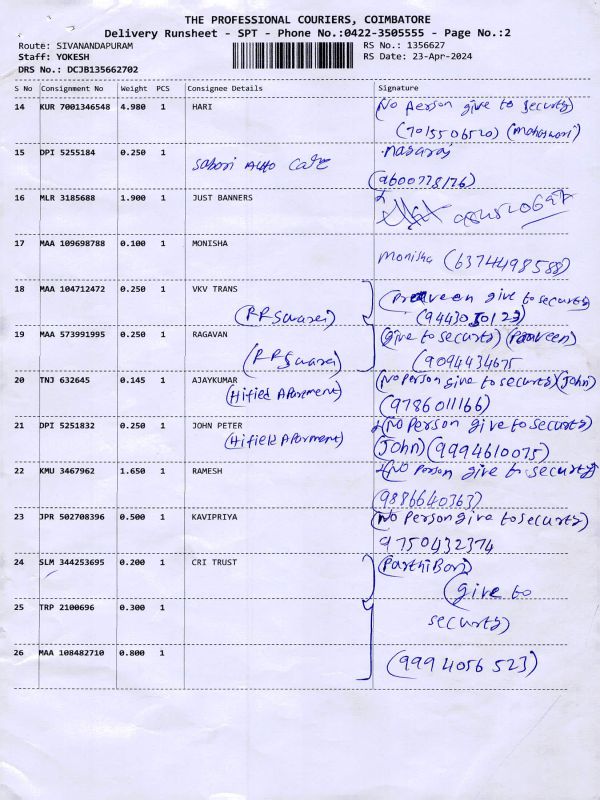 THE PROFESSIONAL COURIERS, COIMBATORE
Delivery Runsheet - SPT - Phone No.:0422-3505555 - Page No.:2
Route: SIVANANDAPURAM
RS No.: 1356627
Staff: YOKESH
RS Date: 23-Apr-2024
DRS No.: DCJB135662702
S No Consignment No Weight PCS Consignee Details Signature
14 KUR 7001346548 4.980 1 HARI (No person give to security)
(7015506520)
15 DPI 5255184 0.250 1
(9600778176)
16 MLR 3185688 1.900 1 JUST BANNERS
17 MAA 109698788 0.100 1 MONISHA
Monisha (6374498588)
18 MAA 104712472 0.250 1 VKV TRANS
give to security
19 MAA 573991995 0.250 1 RAGAVAN (give to security) (Praveen)
(9094434675
20 TNJ 632645 0.145 1 AJAYKUMAR (No Person give to security) (John)
(9786011166)
21 DPI 5251832 0.250 1 JOHN PETER (No Person give to security)
(John) (9994610075)
22 KMU 3467962 1.650 1 RAMESH (No person give to security)
9886640363)
23 JPR 502708396 0.500 1 KAVIPRIYA (No Person give to security)
9750432374
24 SLM 344253695 0.200 1 CRI TRUST
(give to
25 TRP 2100696 0.300 1
security)
26 MAA 108482710 0.800 1
(9994056523)